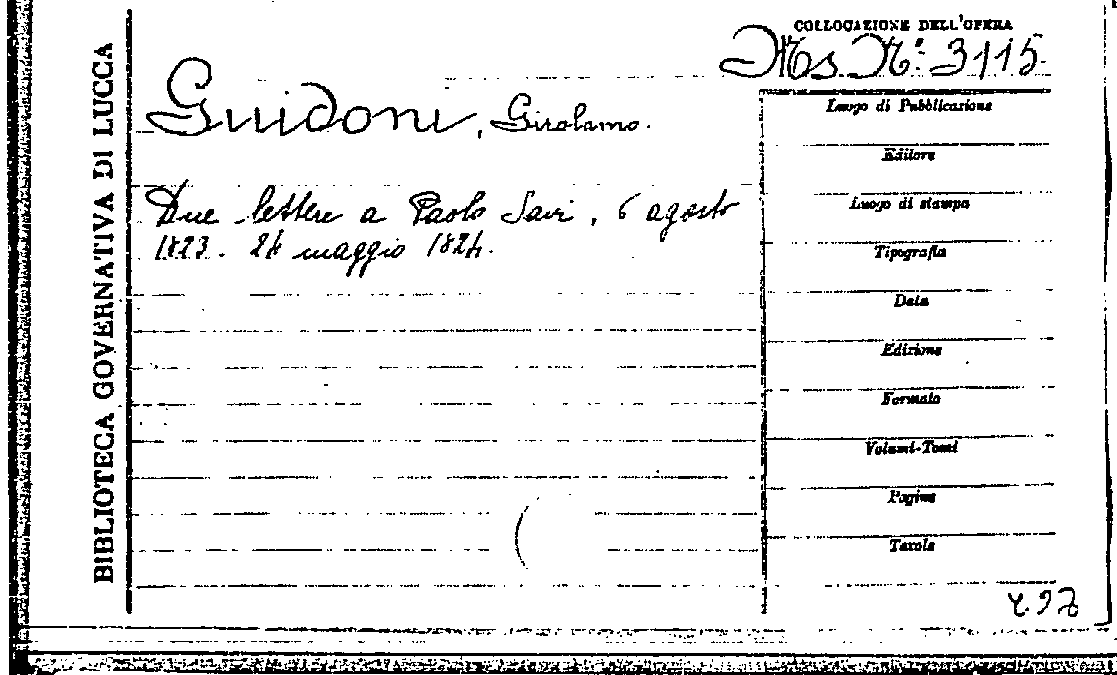 BIBLIOTECA GOVERNATIVA DI LUCCA
COLLOCAZIONE DELL'OPERA
Ms. N.º 3115
Guidoni, Girolamo.
Due lettere a Paolo Savi, 6 agosto
1823. 24 maggio 1824.
Luogo di Pubblicazione
Editore
Luogo di stampa
Tipografia
Data
Edizione
Formato
Volumi-Tomi
Pagine
Tavole